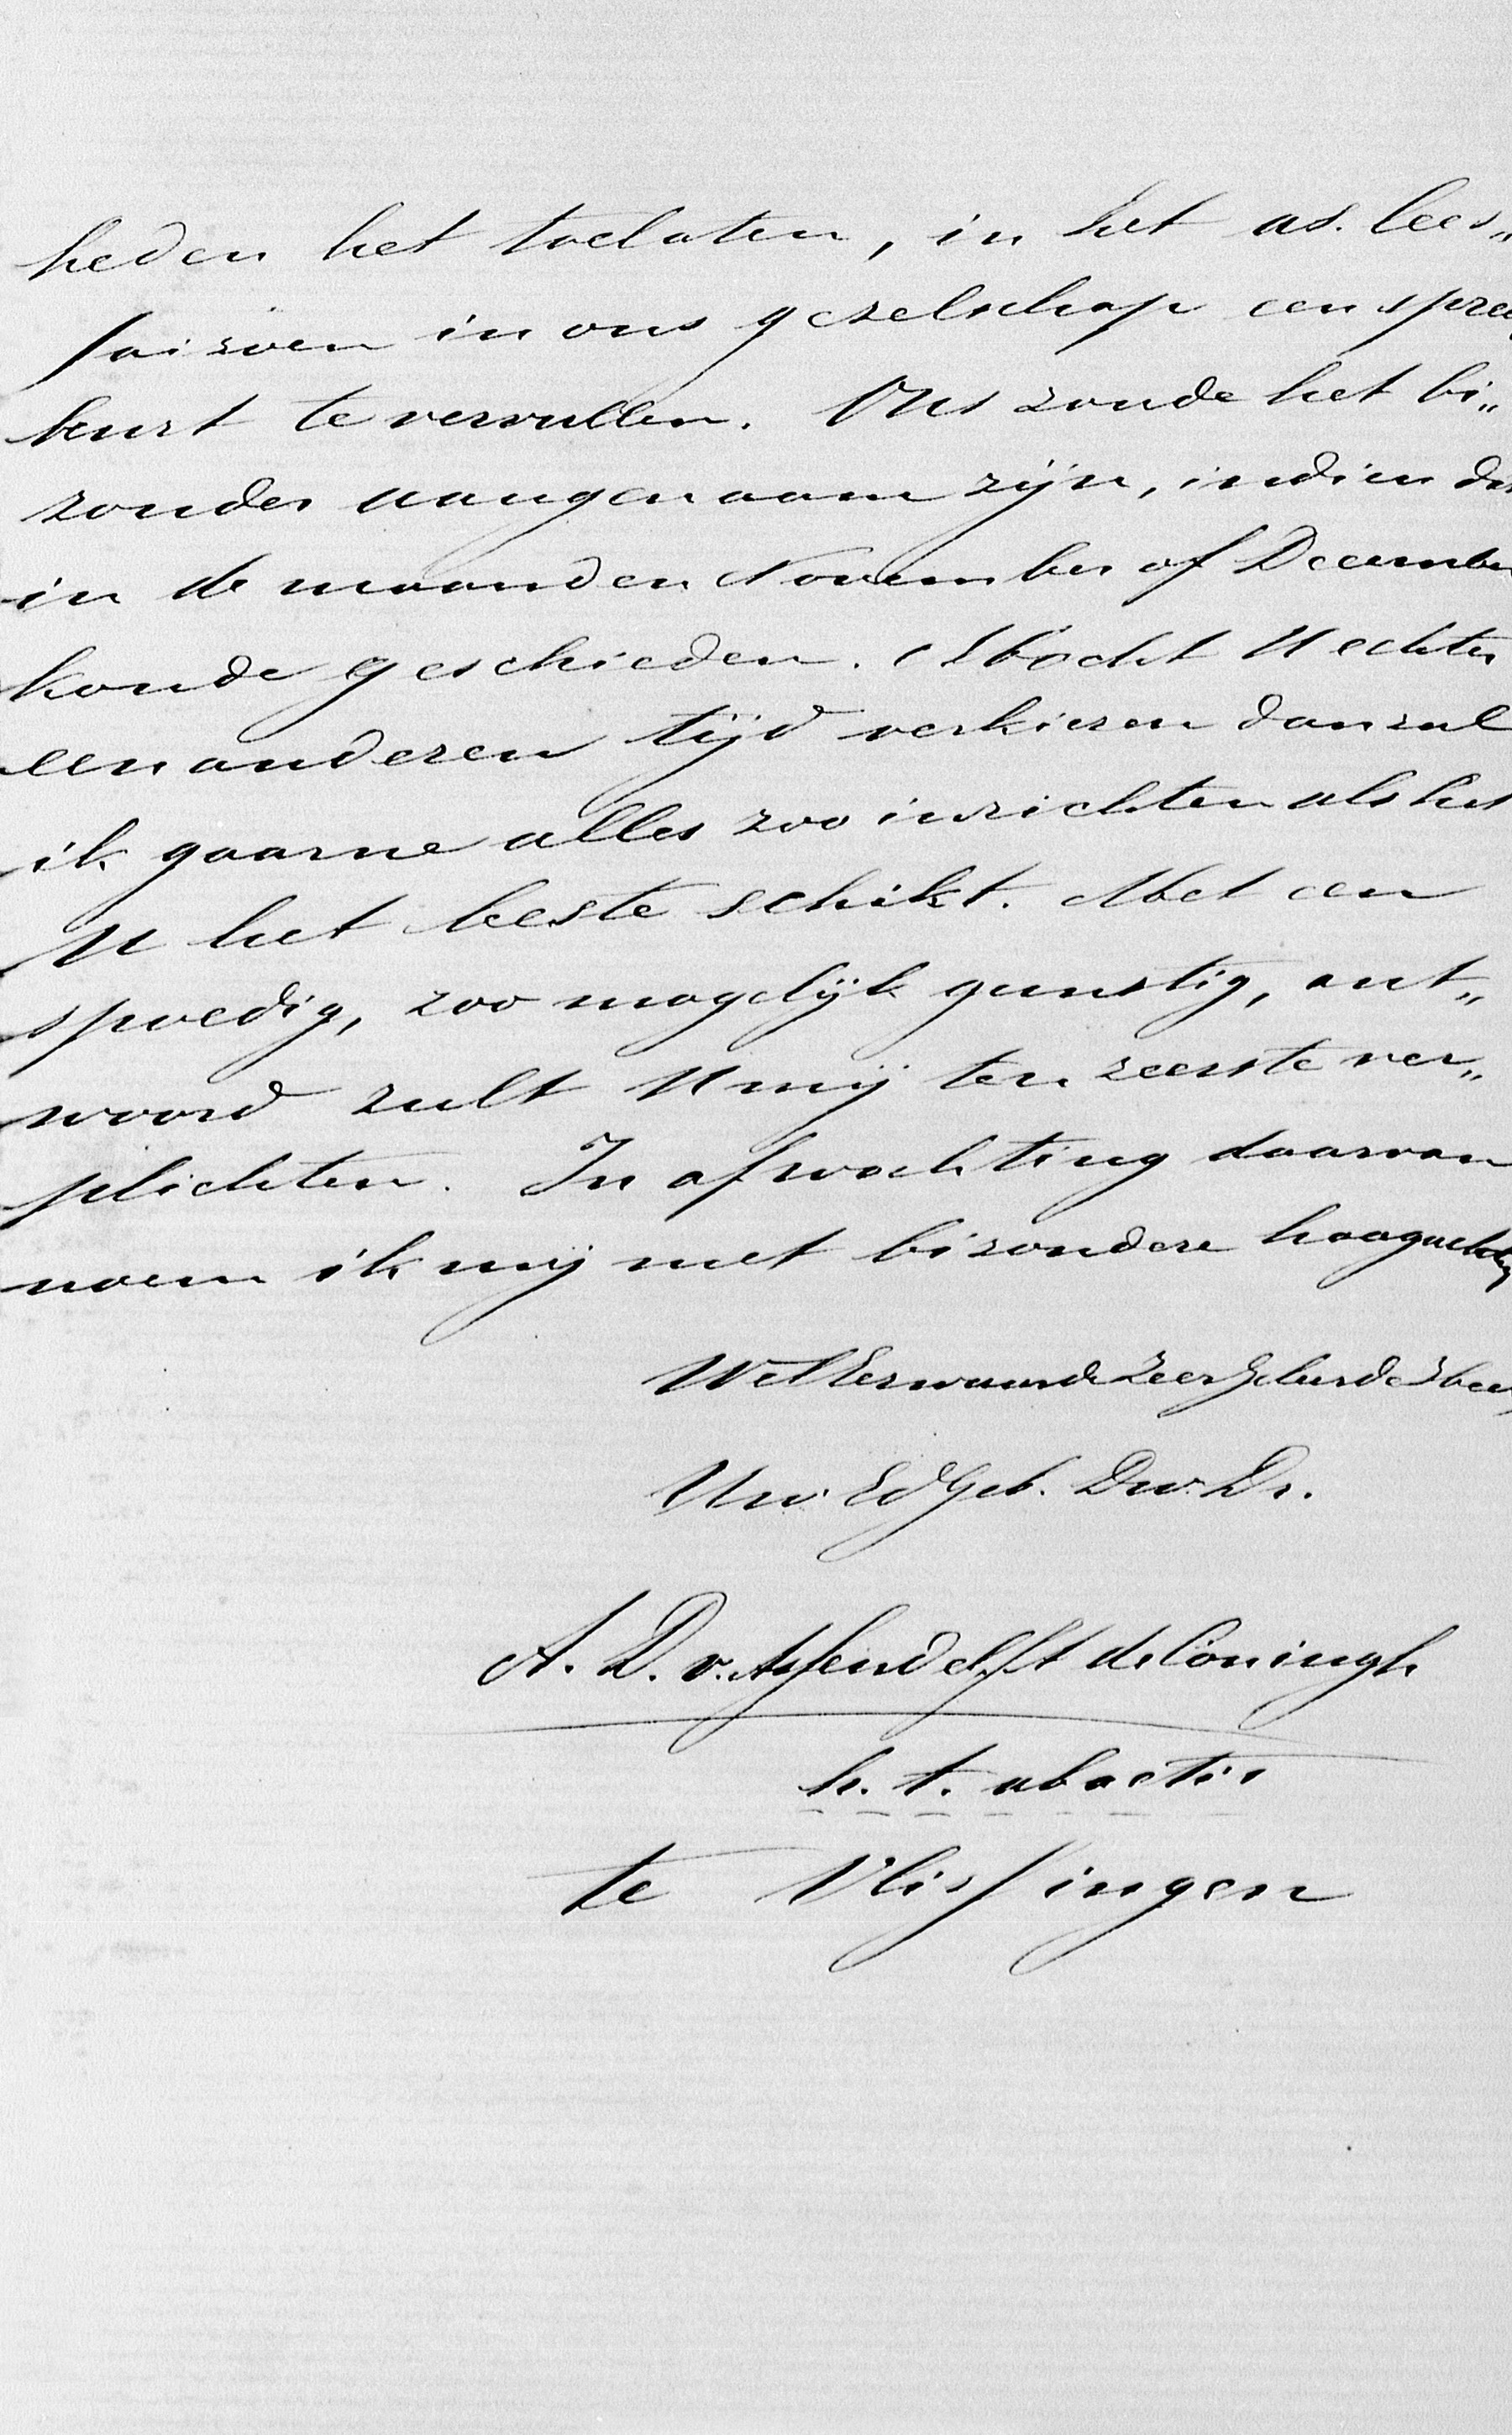 heden het toelaten, in het as. lees„
saizoen in ons gezelschap een spree
beurt te vervullen. Ons zoude het bi„
zonder aangenaam zijn, indien dit
in de maanden November of December
konde geschieden. Mocht U echter
een anderen tijd verkiezen dan zal
ik gaarne alles zoo inrichten als het
U het beste schikt. Met een
spoedig, zoo mogelijk gunstig, ant„
woord zult U mij ten zeerste ver„
plichten. In afwachting daarvan
noem ik mij met bizondere hoogachting
WelEerwaarde Zeer Geleerde Heer,
Uw EdGeb. Dw. Dr.
A. D. v. Assendelft de Coningh
h. t. ab actis
te Vlissingen